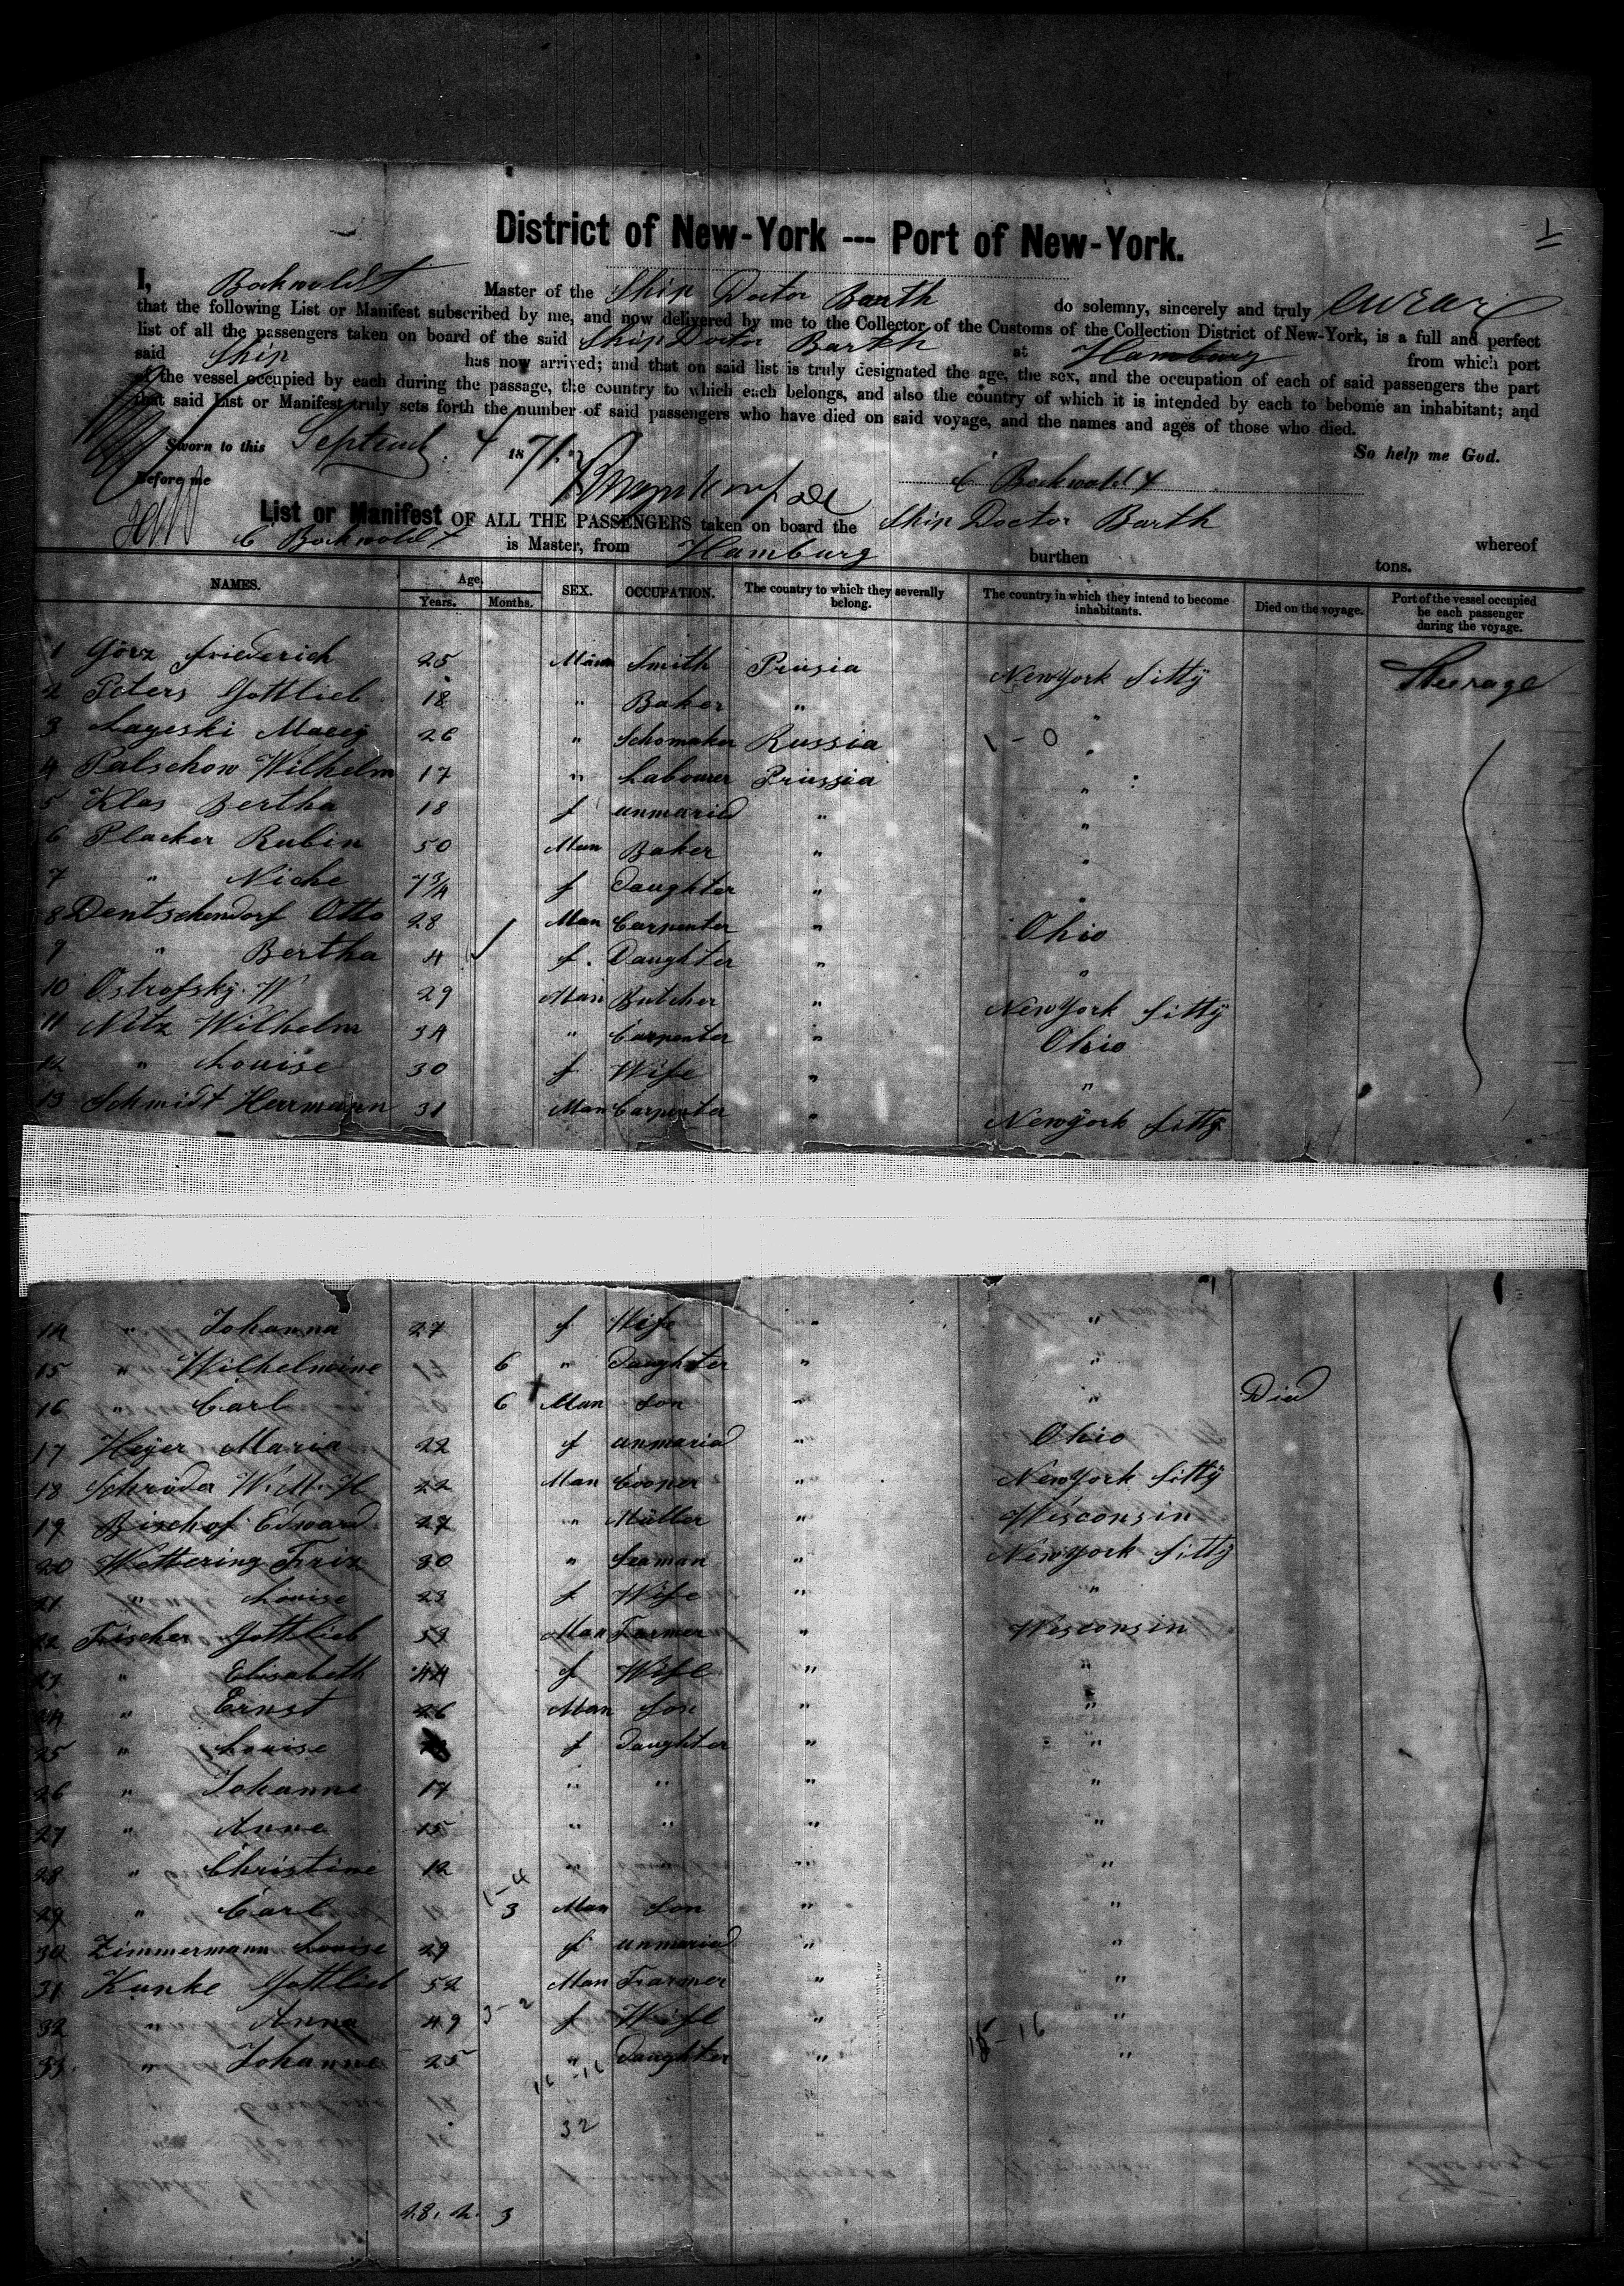 District of New-York --- Port of New-York.
I, Bockwoldt Master of the Ship Doctor Barth do solemny, sincerely and truly swear
that the following List or Manifest subscribed by me, and now delivered by me to the Collector of the Customs of the Collection District of New-York, is a full and perfect
list of all the passengers taken on board of the said Ship Doctor Barth at Hamburg from which port
said Ship has now arrived; and that on said list is truly designated the age, the sex, and the occupation of each of said passengers the part
of the vessel occupied by each during the passage, the country to which each belongs, and also the country of which it is intended by each to bebome an inhabitant; and
that said List or Manifest truly sets forth the number of said passengers who have died on said voyage, and the names and ages of those who died.
Sworn to this Septemb. 4 1871. So help me God.
Before me C Bockwoldt
List or Manifest OF ALL THE PASSENGERS taken on board the Ship Doctor Barth whereof
C Bockwoldt is Master, from Hamburg burthen tons.
NAMES. Age. Years. Months. SEX. OCCUPATION. The country to which they severally belong. The country in which they intend to become inhabitants. Died on the voyage. Port of the vessel occupied be each passenger during the voyage.
1 Görz Friederich 25 Mann Smith Prusia Newyork Sitty Steerage
2 Peters Gottlieb 18 " Baker " "
3 Layeski Maceg 26 " Schomaker Russia 1-0 "
4 Palschow Wilhelm 17 " Labourer Prussia "
5 Klas Bertha 18 f unmaried " "
6 Placker Rubin 50 Man Baker " "
7 " Niche 7 3/4 f Daughter " "
8 Dentschendorf Otto 28 Man Carpenter " Ohio
9 " Bertha 4 f. Daughter " "
10 Ostrofsky W 29 Man Butcher " Newyork Sitty
11 Nitz Wilhelm 34 " Carpenter " Ohio
12 " Louise 30 f Wife " "
13 Schmidt Herrmann 31 Man Carpenter " Newyork Sitty
14 " Johanna 27 f Wife " "
15 " Wilhelmine 6 " Daughter " "
16 " Carl 6 Man Son " " Died
17 Heyer Maria 22 f unmaried " Ohio
18 Schröder W. M. H 22 Man Cooper " Newyork Sitty
19 Bischof Edward 27 " Müller " Wisconsin
20 Wettering Friz 30 " Seaman " Newyork Sitty
21 " Louise 23 f Wife " "
22 Fischer Gottlieb 53 Man Farmer " Wisconsin
23 " Elisabeth 44 f Wife " "
24 " Ernst 26 Man Son " "
25 " Louise f Daughter " "
26 " Johanne 17 " " " "
27 " Anna 15 " " " "
28 " Christine 12 " " "
29 " Carl 3 Man Son " "
30 Zimmermann Louise 29 f unmaried " "
31 Kunke Gottlieb 52 Man Farmer " "
32 " Anna 49 3-2 f Wife " "
33. " Johanne 25 " Daughter " 15-16 "
32
28. 2. 3